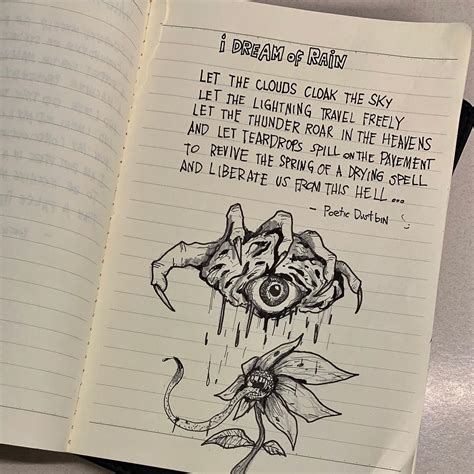 i DREAM OF RAiN
LET THE CLOUDS CLOAK THE SKY
LET THE LIGHTNING TRAVEL FREELY
LET THE THUNDER ROAR IN THE HEAVENS
AND LET TEARDROPS SPILL ON THE PAVEMENT
TO REVIVE THE SPRING OF A DRYING SPELL
AND LIBERATE US FROM THIS HELL...
- Poetic Dustbin :)